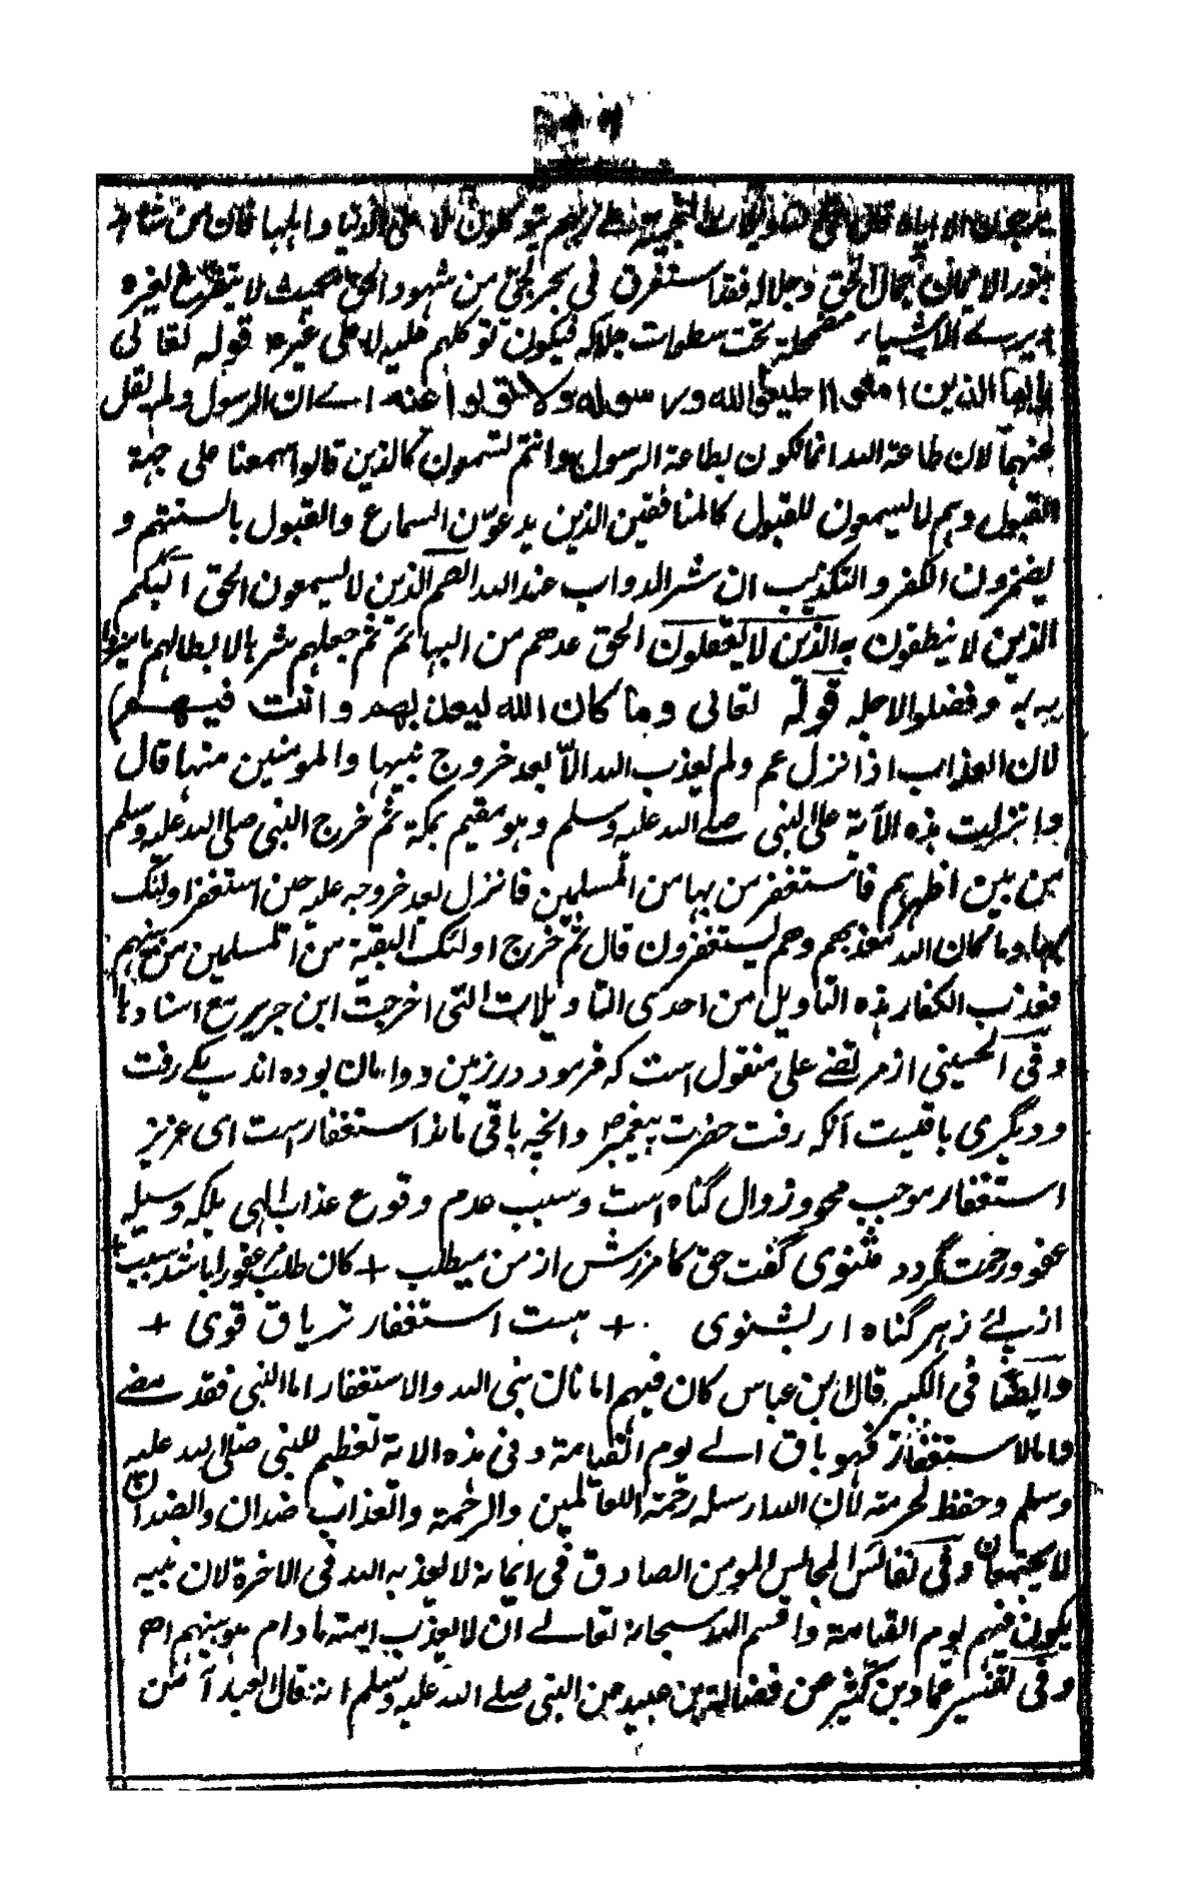 يتوكلون لا على الدنيا واهلها فان من شاهد
بنور الايمان جمال الحق وجلاله فقد استغرق في بحر لجي من شهود الحق بحيث لا يتفرغ لغيره
ويرى الاشياء مضمحلة تحت سطوات جلاله فيكون توكلهم عليه لا على غيره قوله تعالى
يا ايها الذين امنوا اطيعوا الله ورسوله ولا تولوا عنه اے ان الرسول ولم يقل
عنهما لان طاعة الله انما تكون بطاعة الرسول وانتم تسمعون كالذين قالوا سمعنا على جهة
القبول وهم لا يسمعون للقبول كالمنافقين الذين يدعون السماع والقبول بالسنتهم و
يضمرون الكفر والتكذيب ان شر الدواب عند الله الصم الذين لا يسمعون الحق البكم
الذين لا ينطقون به الذين لا يعقلون الحق عدهم من البهائم ثم جعلهم شرها لابطالهم ما ميزوا
به وفضلوا لاجله قوله تعالى وما كان الله ليعذبهم وانت فيهم
لان العذاب اذا نزل عم ولم يعذب الله الا بعد خروج نبيها والمومنين منها قال
وانزلت هذه الآية على النبي صلے الله عليه وسلم وهو مقيم بمكة ثم خرج النبي صلى الله عليه وسلم
من بين اظهرهم فاستغفر من بها من المسلمين فانزل بعد خروجه عليه حين استغفر اولئك
بها وما كان الله معذبهم وهم يستغفرون قال ثم خرج اولئك البقية من المسلمين من بينهم
فعذب الكفار هذه التاويل من احدى التاويلات التى اخرجت ابن جرير مع اسنادها
وفى الحسيني از مرتضے على منقول است كه فرمود در زمين دو امان بوده اند يكے رفت
وديگرى باقيست آنكه رفت حضرت پيغمبر ص وانچه باقى مانذ استغفار است اى عزيز
استغفار موجب محو وزوال گناه است وسبب عدم وقوع عذاب الهى بلكه وسيله
عفو ورحمت گردد مثنوى گفت حق كامرزش از من ميطلب + كان طلب مر عفو را باشد سبب +
از پئے زهر گناه ار بشنوى + هست استغفار ترياق قوى +
وايضا فى الكبير قال ابن عباس كان فيهم امانان نبى الله والاستغفار اما النبى فقد مضے
واما الاستغفار فهو باق الے يوم القيامة وفى هذه الاية تعظيم للنبى صلى الله عليه
وسلم وحفظ لحرمته لان الله ارسله رحمة للعالمين والرحمة والعذاب ضدان والضدان
لا يجتمعان وفى نفائس المجالس المومن الصادق فى ايمانه لا يعذبه الله فى الاخرة لان نبيه
يكون فيهم يوم القيامة واقسم الله سبحانه تعالے ان لا يعذب امته ما دام هو بينهم اه
وفى تفسير عماد بن كثير عن فضالة بن عبيد عن النبى صلے الله عليه وسلم انه قال العبد آمن